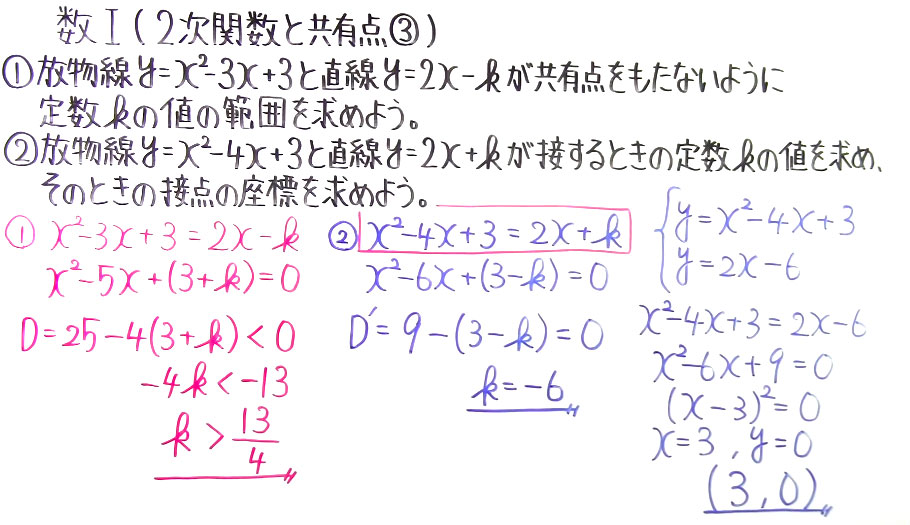 数I(2次関数と共有点③)
①放物線y=x²-3x+3と直線y=2x-kが共有点をもたないように
定数kの値の範囲を求めよう。
②放物線y=x²-4x+3と直線y=2x+kが接するときの定数kの値を求め、
そのときの接点の座標を求めよう。
① x²-3x+3=2x-k
x²-5x+(3+k)=0
D=25-4(3+k)<0
-4k<-13
k>13/4
② x²-4x+3=2x+k
x²-6x+(3-k)=0
D'=9-(3-k)=0
k=-6
{y=x²-4x+3
y=2x-6
x²-4x+3=2x-6
x²-6x+9=0
(x-3)²=0
x=3, y=0
(3,0)